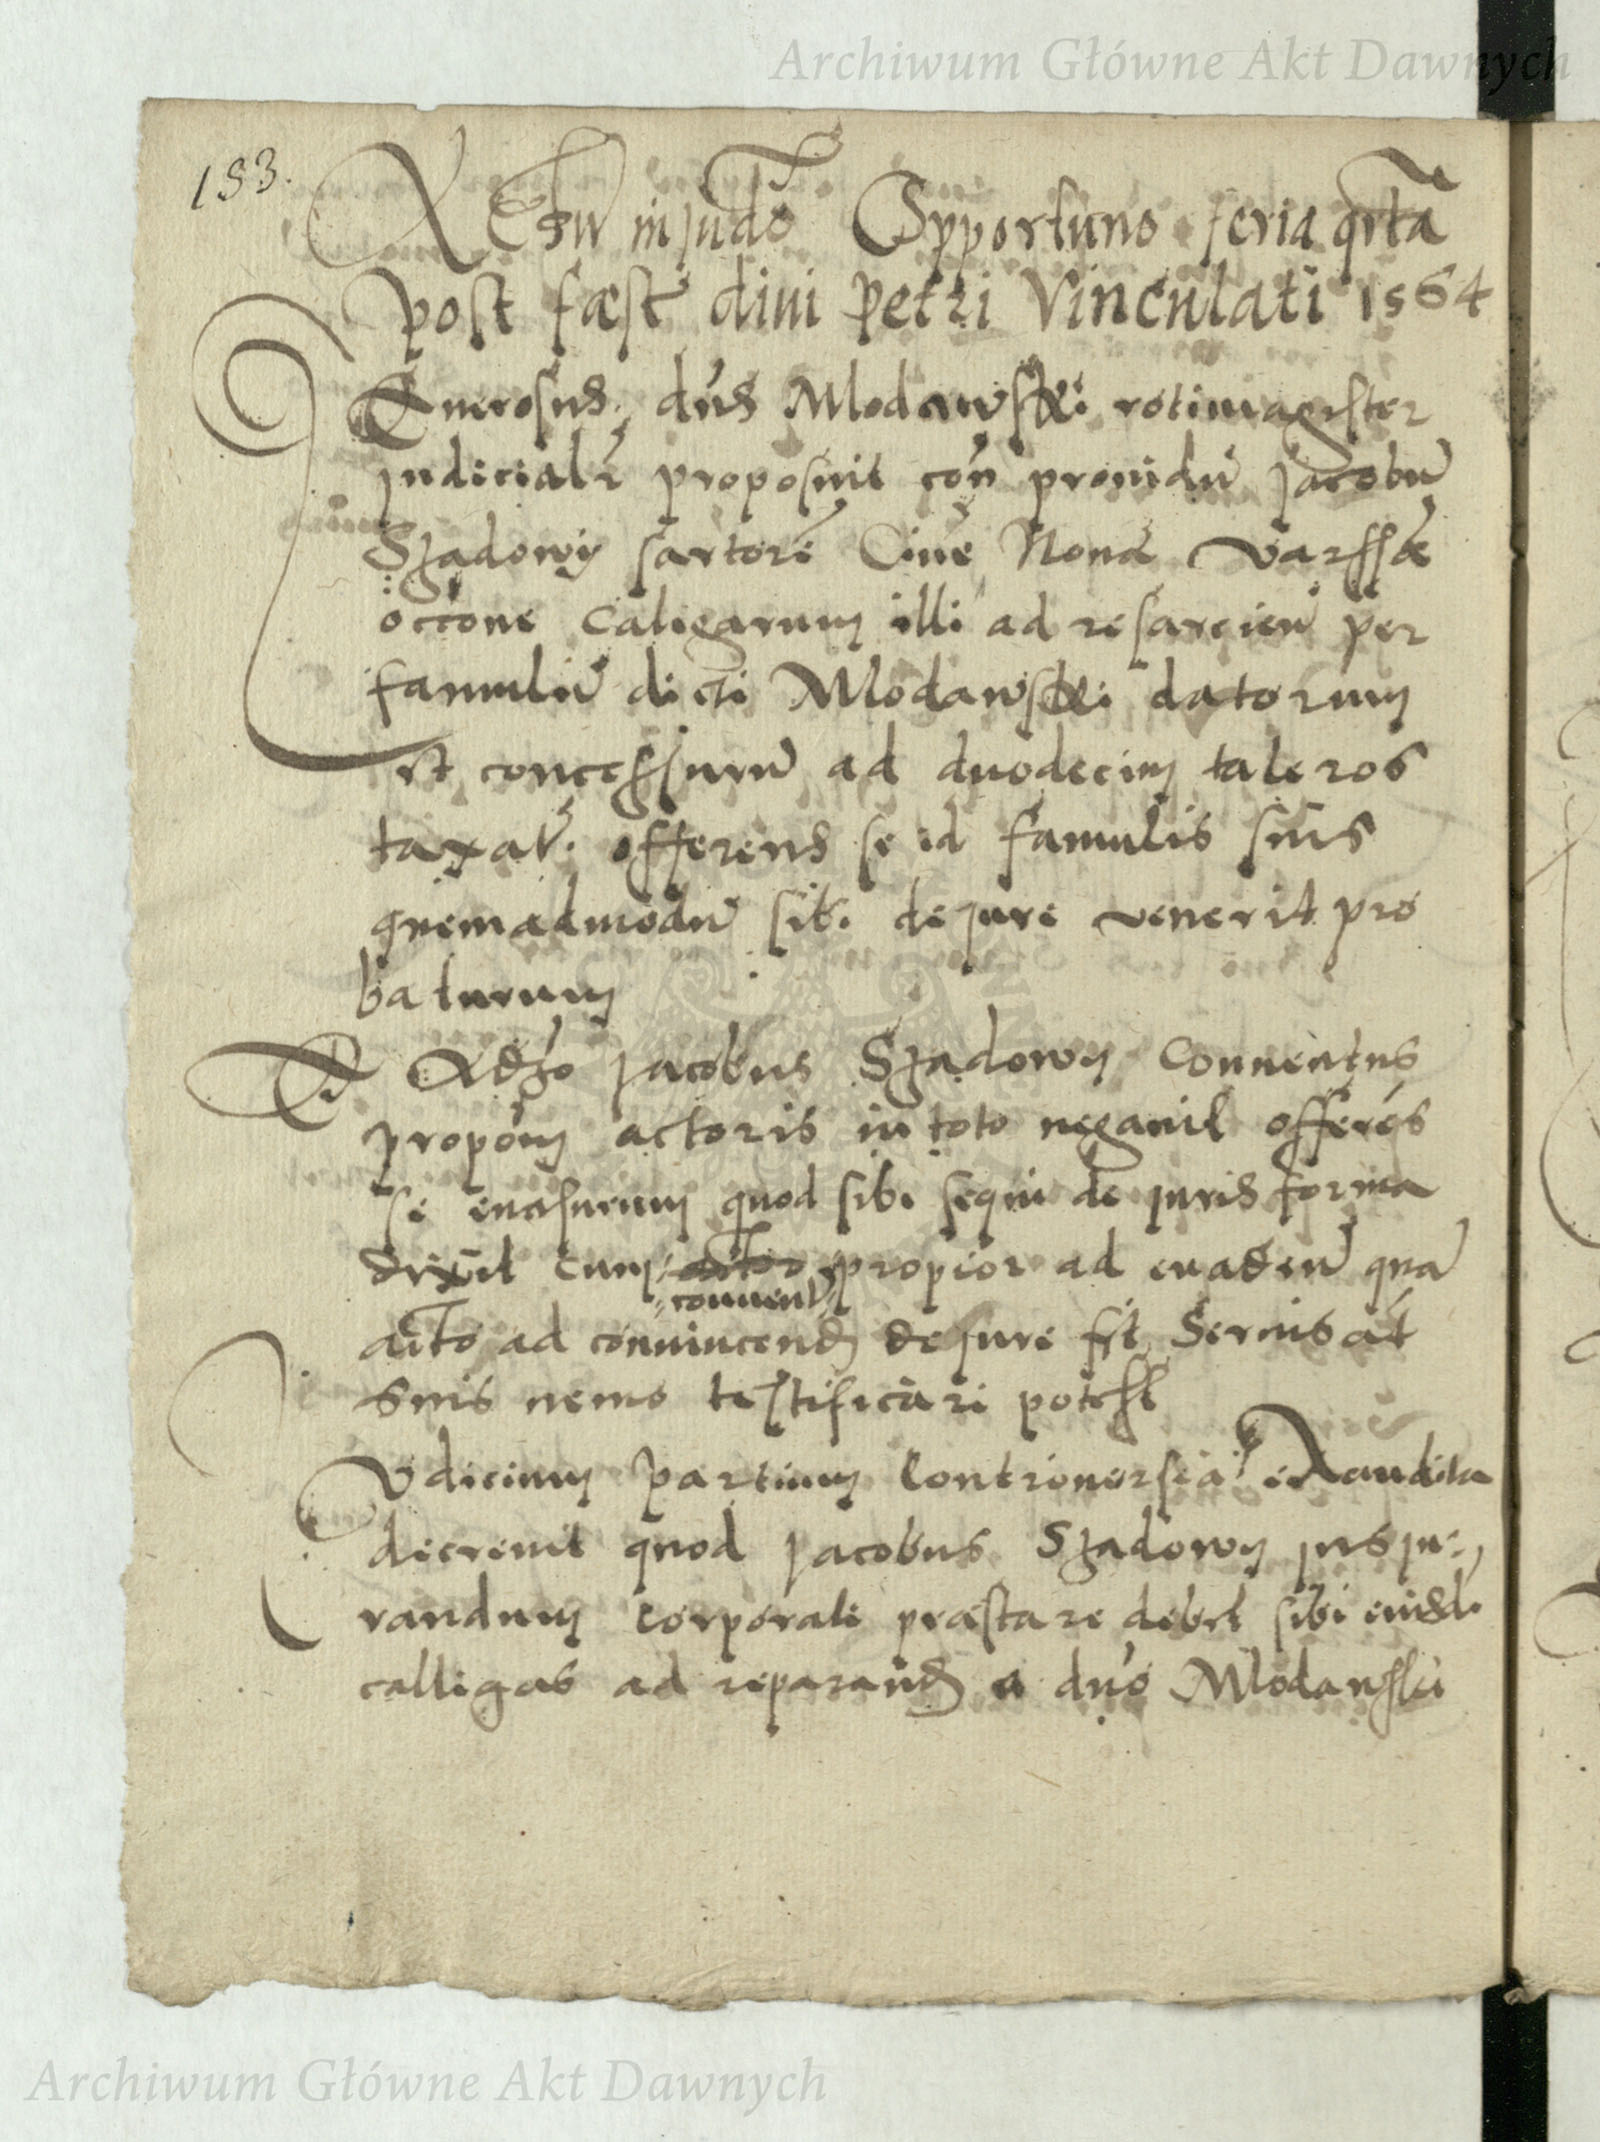 Archiwum Główne Akt Dawnych
183.
Actum in judo Opportuno feria qrta
post fæst diui Petri Vinculati 1564
Generosus dns Mlodawski rotimagister
judicialr proposuit con prouidu Jacobu
Szadowy sartore Ciue Noua Varssæ
occone caligarum illi ad resarcien per
famulu dicti Mlodawski datorum
et concessuru ad duodecim taleros
taxat. offerens se id famulis suis
quemadmodu sibi de jure venerit pro
baturum
Adゞo Jacobus Szadowy Conuentus
propom actoris in toto negauit offeres
se euasurum quod sibi sequi de juris forma
dixit cum propior ad euaden qua
conuent
acto ad conuincend de jure sit Seruis at
suis nemo testificari potest
Judicium partium Controuersia exaudita
decreuit quod Jacobus Szadowy jus ju:
randum corporale præstare debet sibi eiusd.
calligas ad reparand a dno Mlodawski
Archiwum Główne Akt Dawnych